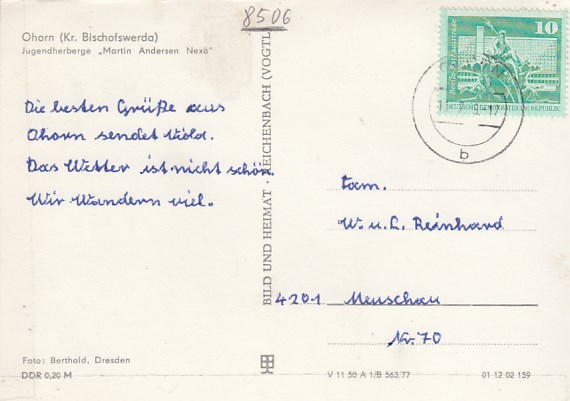 8506
Ohorn (Kr. Bischofswerda)
Jugendherberge „Martin Andersen Nexö"
Die besten Grüße aus
Ohorn sendet
Das Wetter ist nicht schön.
Wir Wandern viel.
Foto: Berthold, Dresden
DDR 0,20 M
BILD UND HEIMAT · REICHENBACH (VOGTL
10
Berlin, Fischerinsel
DEUTSCHE DEMOKRATISCHE REPUBLIK
b
Fam.
W. u. L. Reinhard
4201 Meuschau
Nr. 70
V 11 50 A 1/B 563/77
01 12 02 159